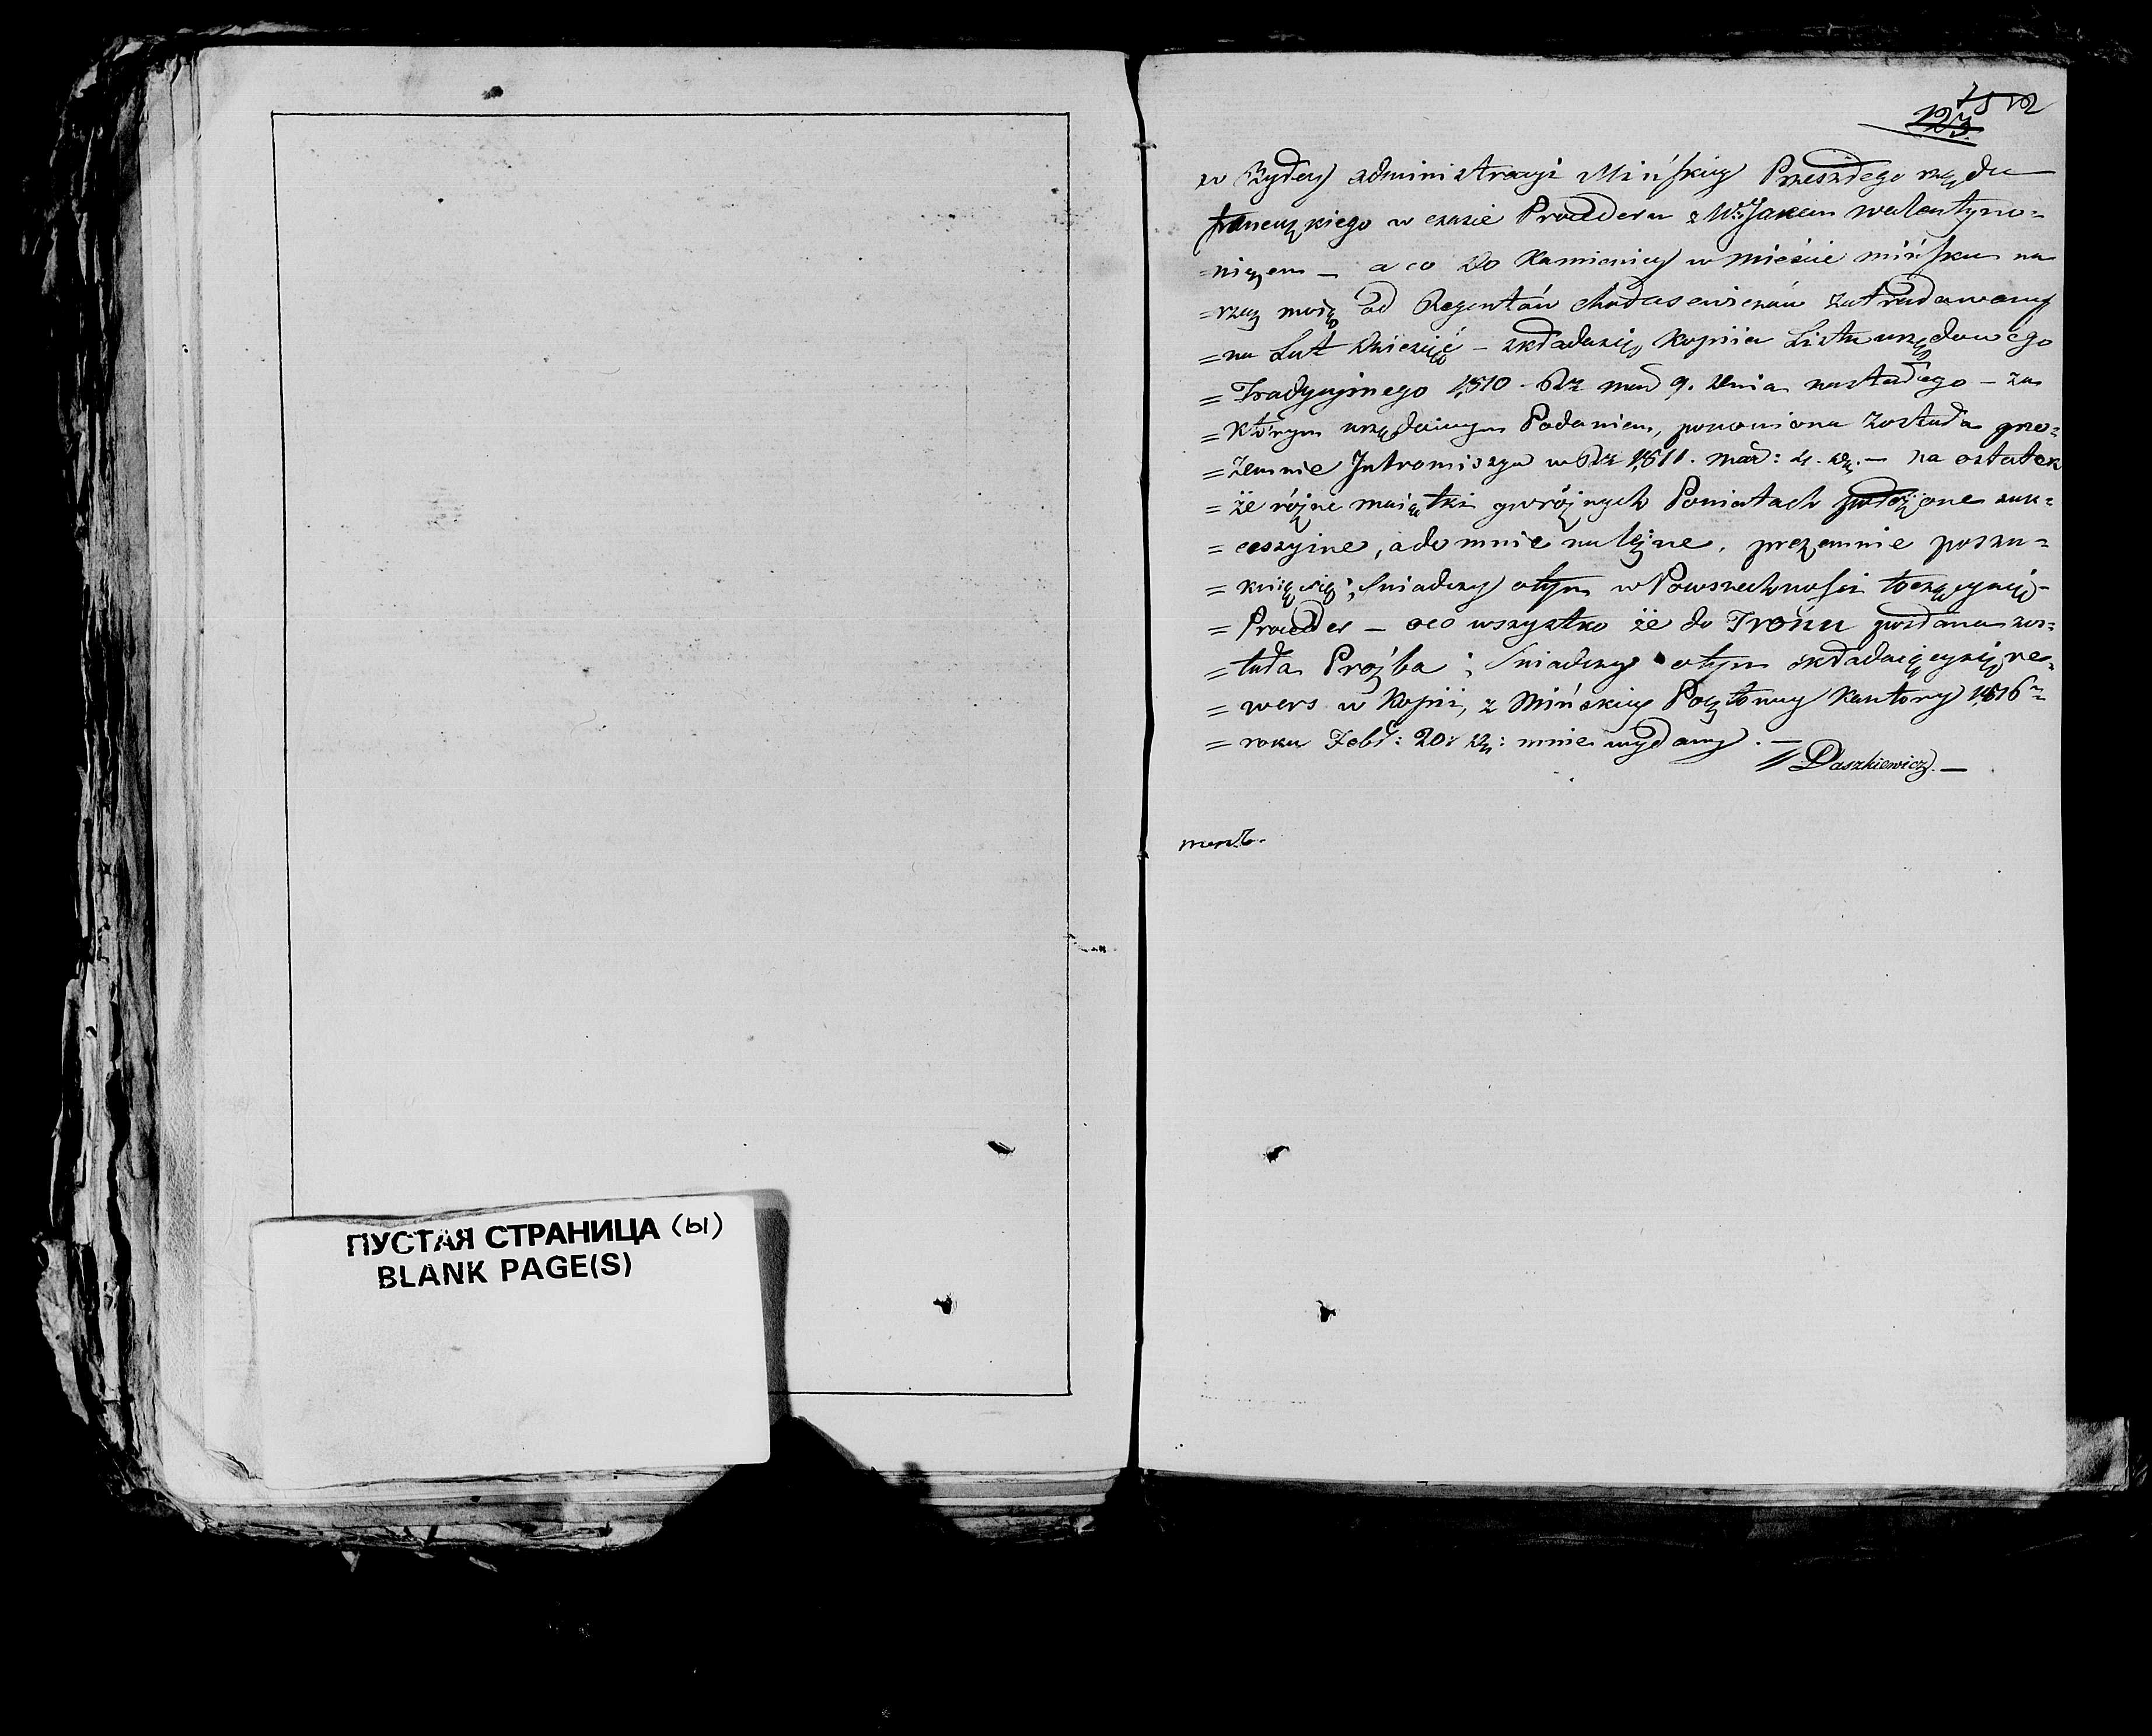 ПУСТАЯ СТРАНИЦА (ы)
BLANK PAGE(S)
123.
w administracyi Mińskiey Przeszłego rządu
francuzkiego w czasie Procederu z Janem Walentyno=
a co do Kamienicy w mieście mińsku na
=rzecz moią od Regentów Chodasewiczów zatradowaney
=na Lat dziesięć – składasię Kopiia Listu urzędowego
=Tradycyinego 1810. 9. dnia nastałego – za
=którym urzędowym Podaniem, ponowiona została prze=
=zemnie Intromissya w 1811. mar: 4. – na ostatek
=że różne maiątki w różnych Powiatach położone suk=
=cessyine, a do mnie należne, przezemnie poszu=
=kuią się; świadczy o tym w Powszechności toczącysię
=Proceder – oco wszystko że do Tronu podana zos=
=tała Prozba; świadczy o tym składaiącysię re=
=wers w Kopii, z Mińskiey Pocztowey Kantory 1816
=roku Febr: 20: mnie wydany. –
Daszkiewicz. –